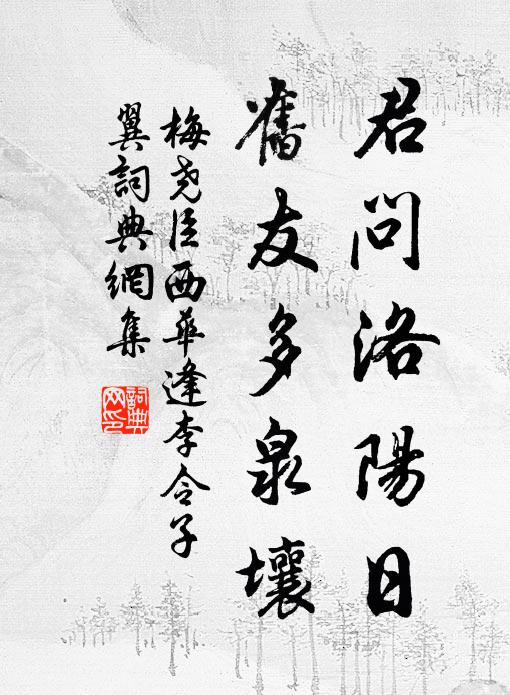 君問洛陽日
舊友多泉壤
梅堯臣西華逢李令子
翼詞典網集
詞典
网印